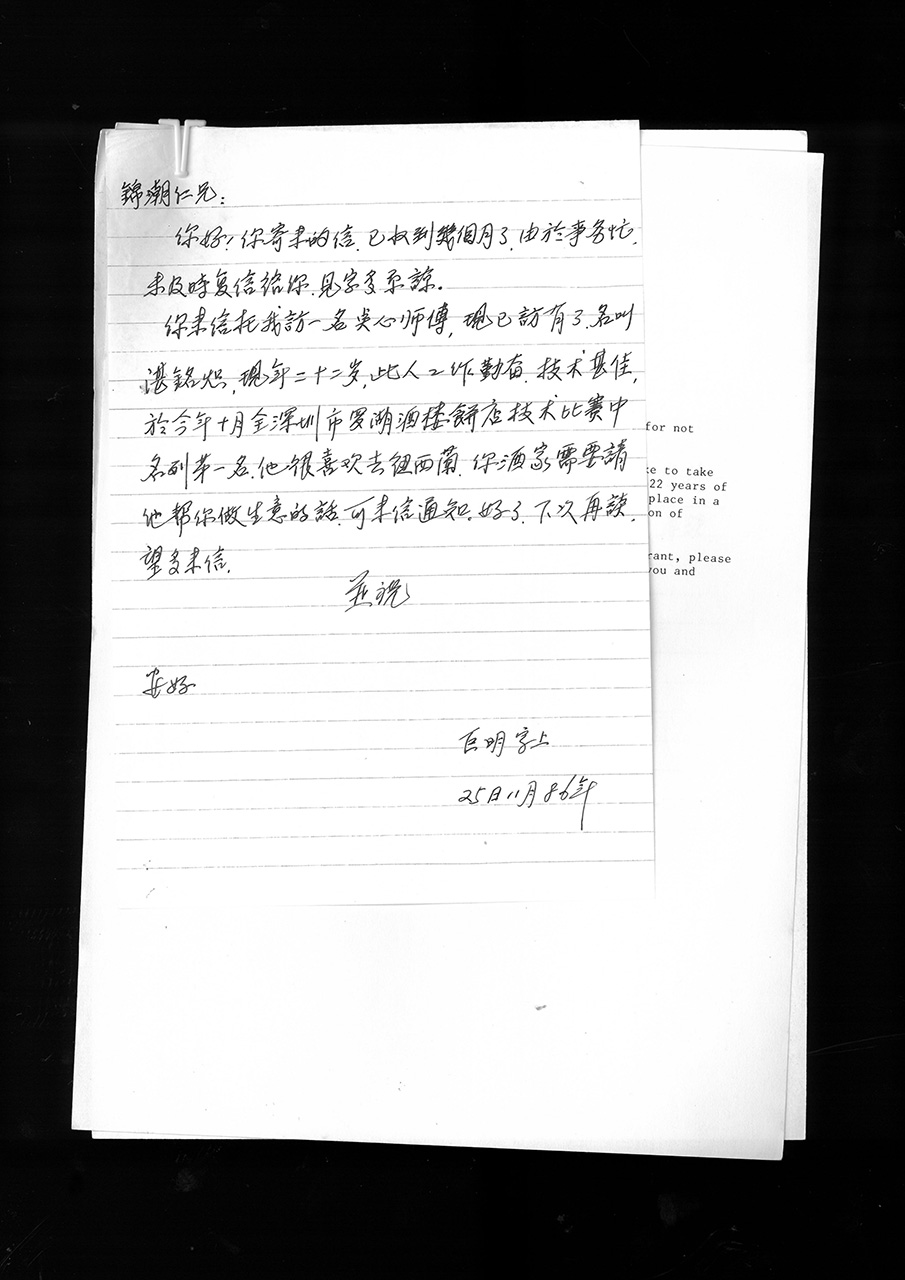 錦潮仁兄：
你好！你寄来的信，已收到幾個月了，由於事务忙，
未及时复信给你，見字多原諒。
你来信托我訪一名点心师傅，現已訪有了，名叫
湛銘炽，現年二十二岁，此人工作勤奋，技术甚佳，
於今年十月全深圳市罗湖酒楼餅店技术比赛中
名列第一名，他很喜欢去纽西蘭，你酒家需要請
他帮你做生意的話，可来信通知。好了，下次再談，
望多来信，
並祝
安好
巨明字上
25日11月86年
for not
ke to take
22 years of
place in a
on of
rant, please
you and